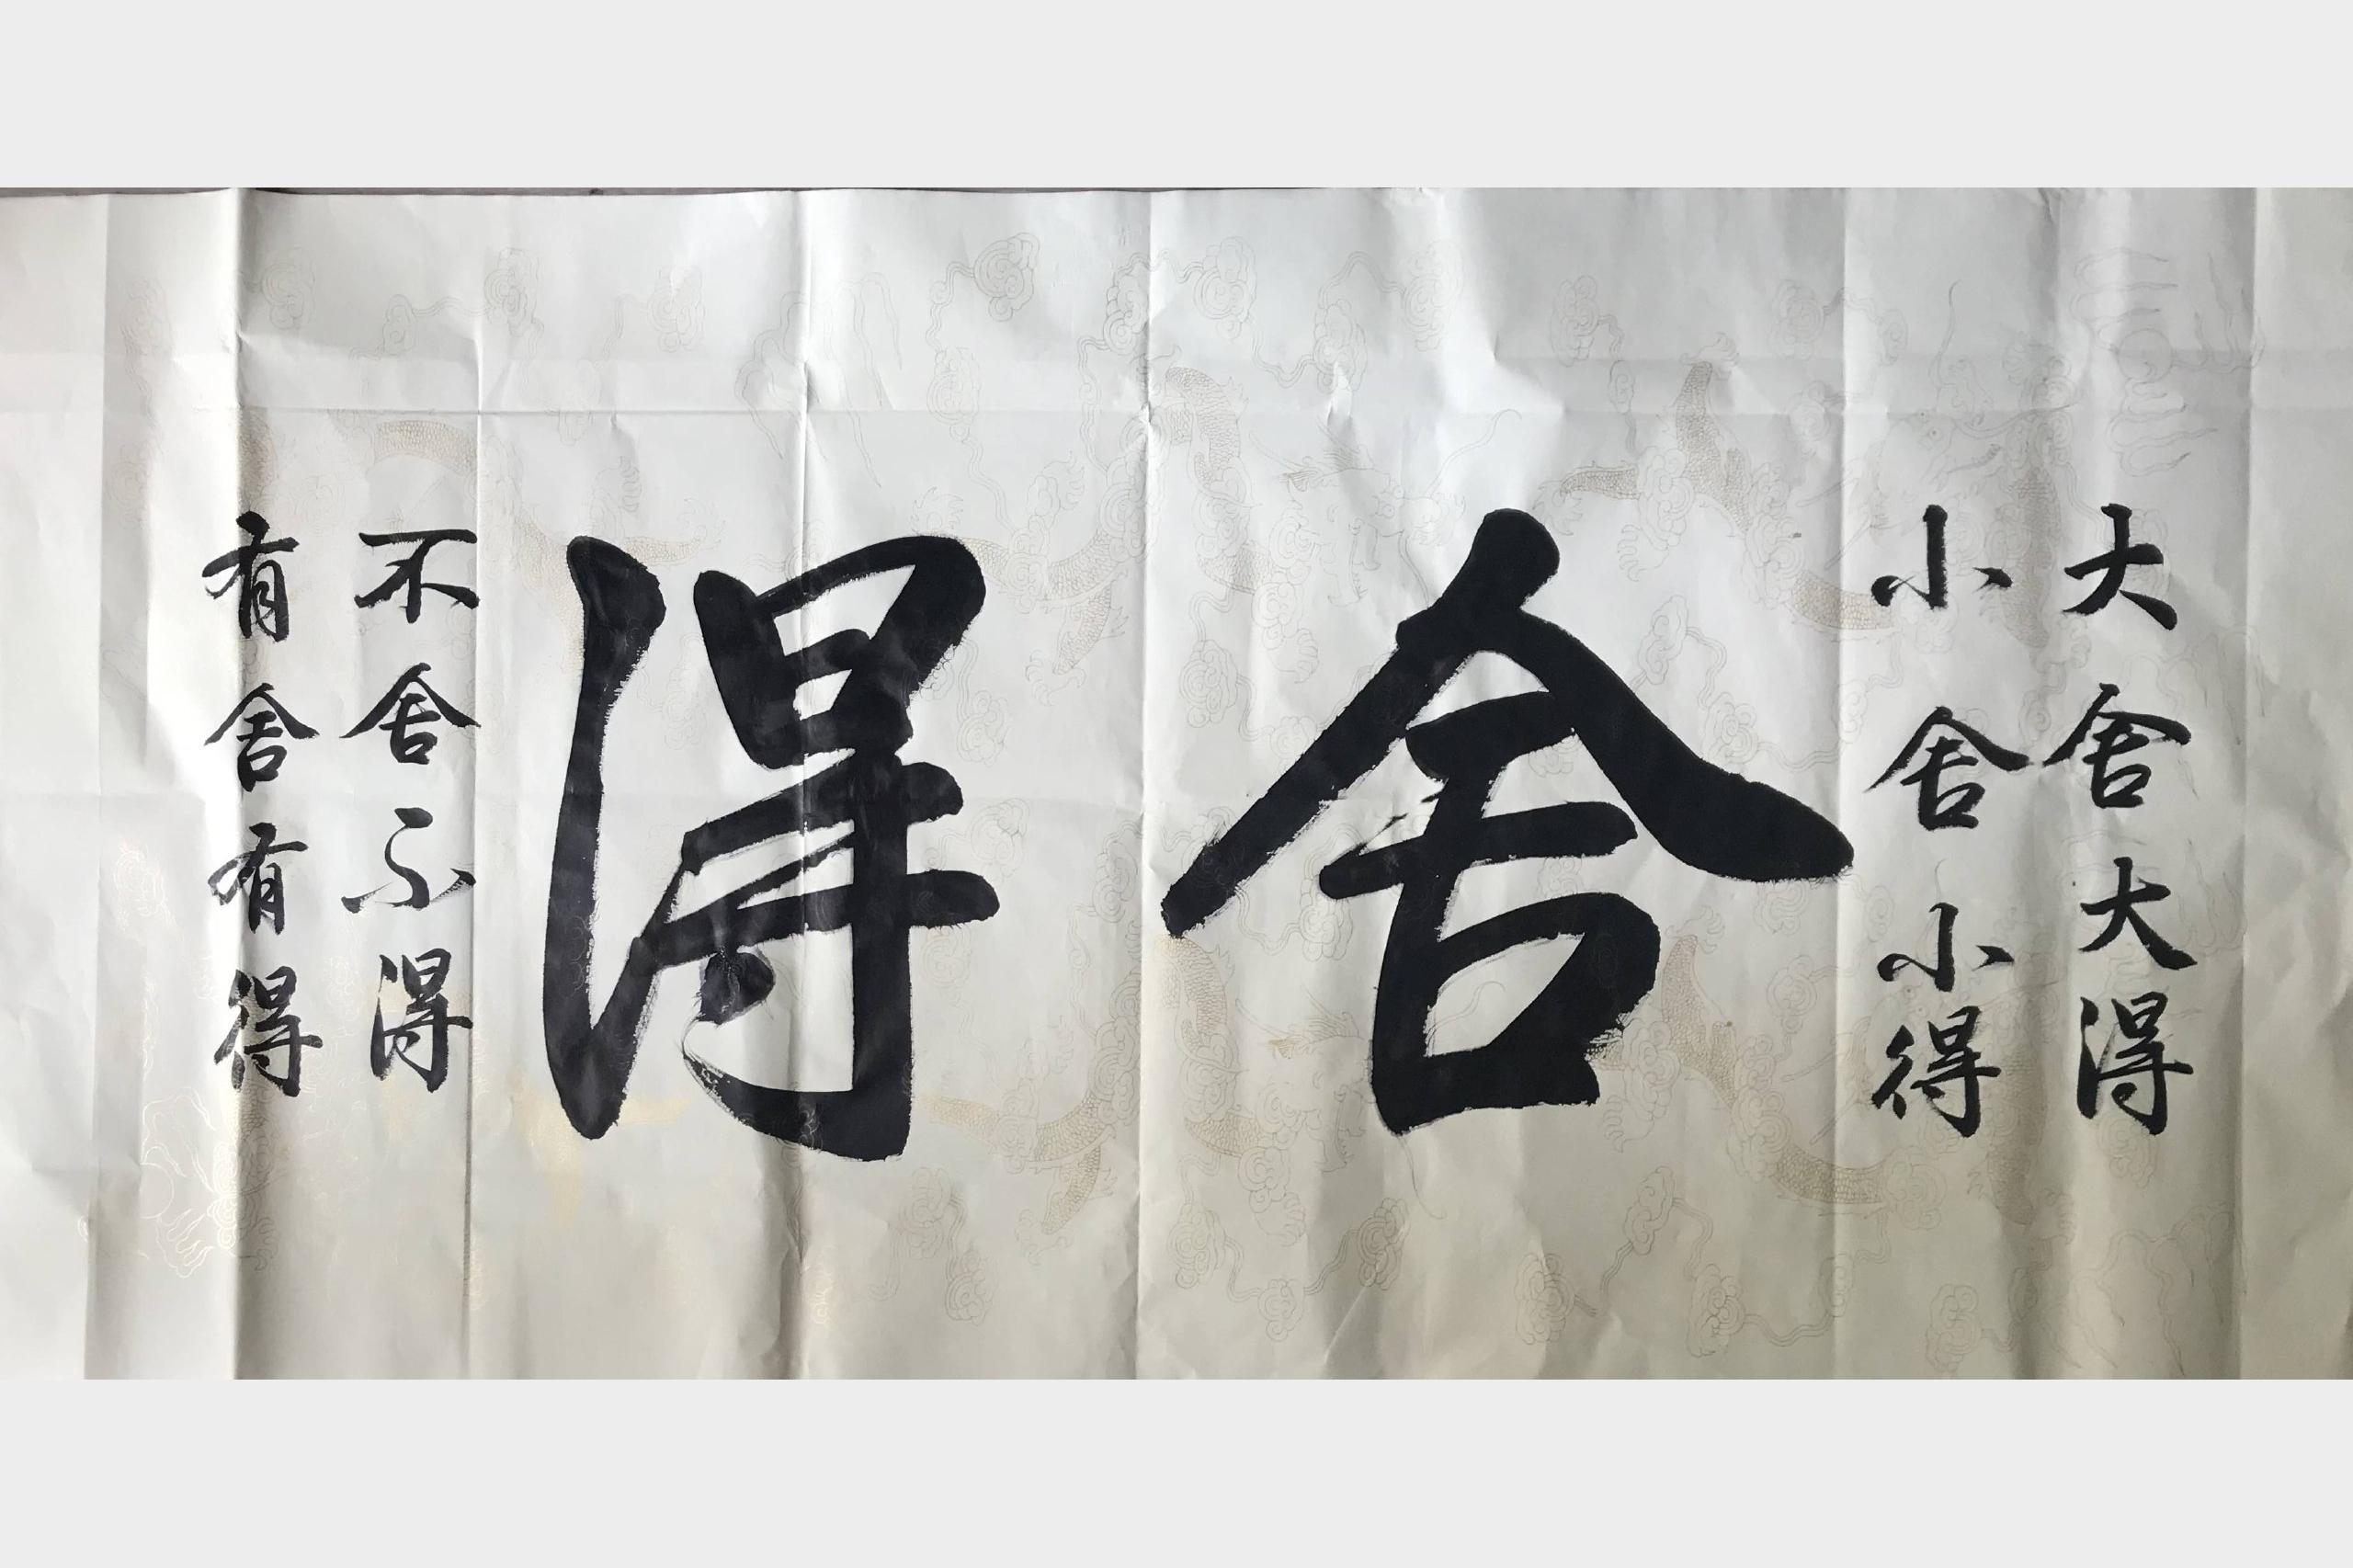 大舍大得
小舍小得
舍得
不舍不得
有舍有得